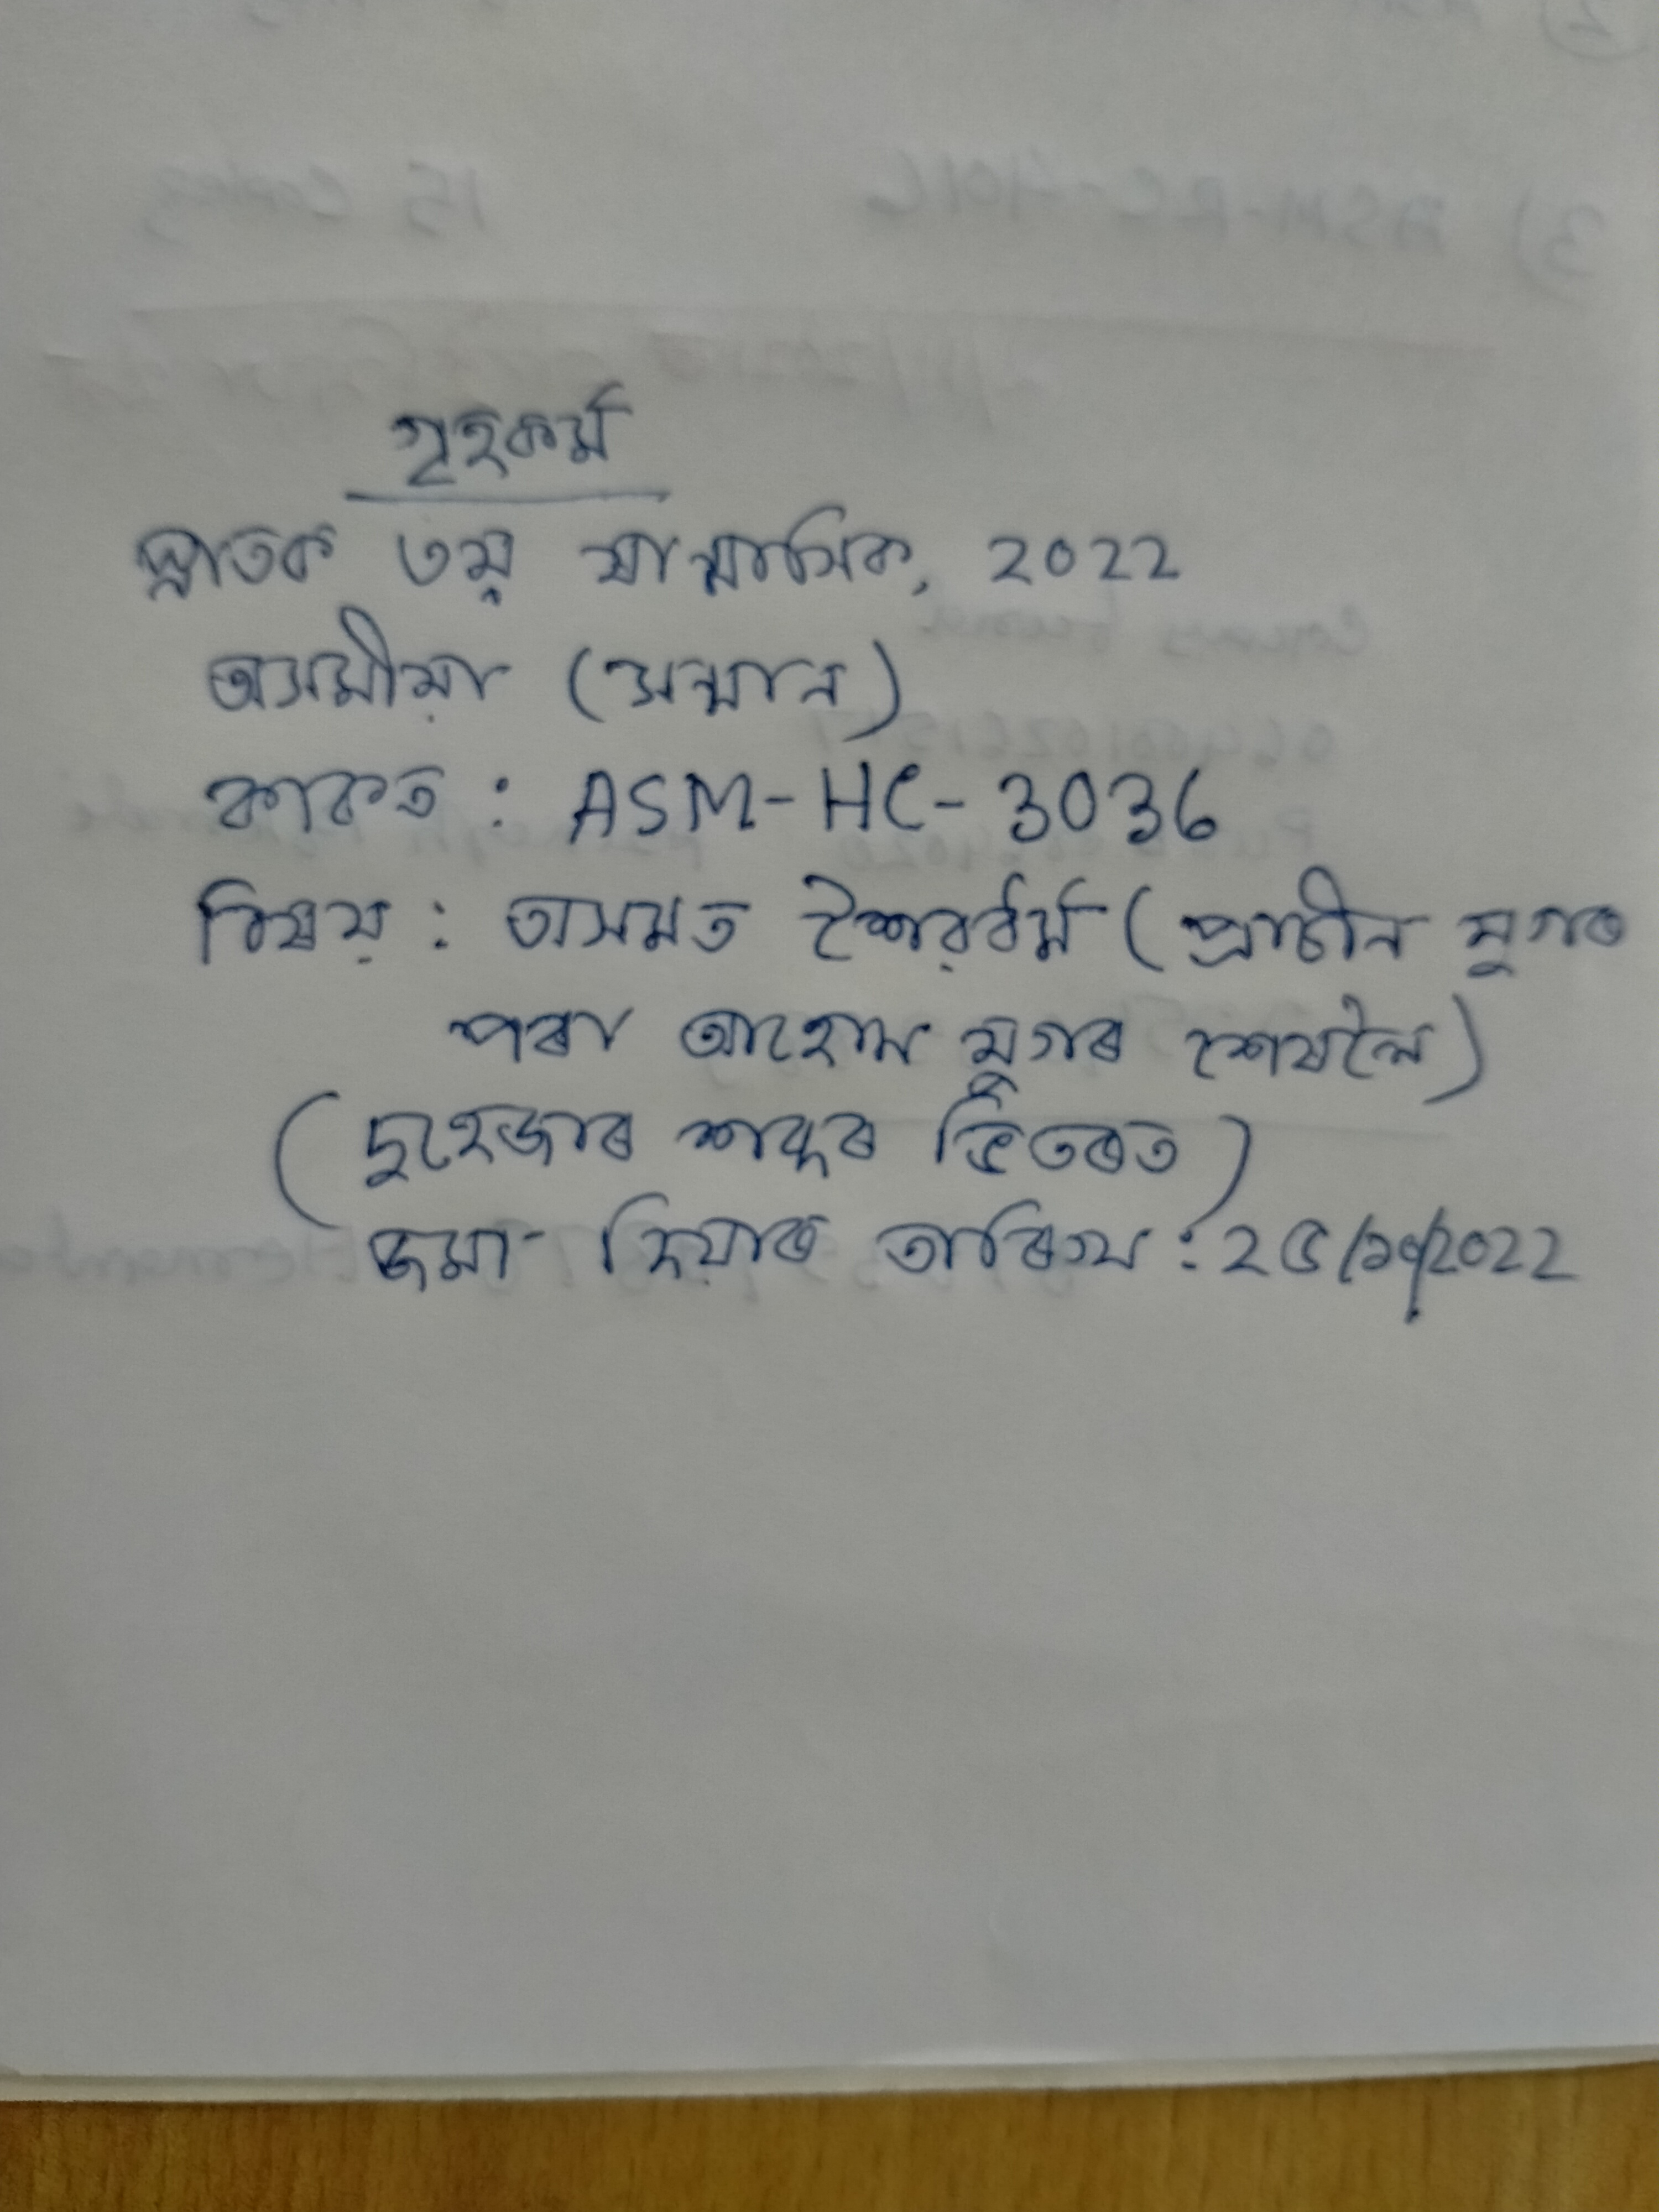 গৃহকৰ্ম
স্নাতক ৩য় ষান্মাসিক, 2022
অসমীয়া (সন্মান)
কাকত : ASM-HC-3036
বিষয় : অসমত শৈৱধৰ্ম (প্ৰাচীন যুগৰ
পৰা আহোম যুগৰ শেষলৈ)
(দুহেজাৰ শব্দৰ ভিতৰত)
জমা দিয়াৰ তাৰিখ : 2৫/১০/2022